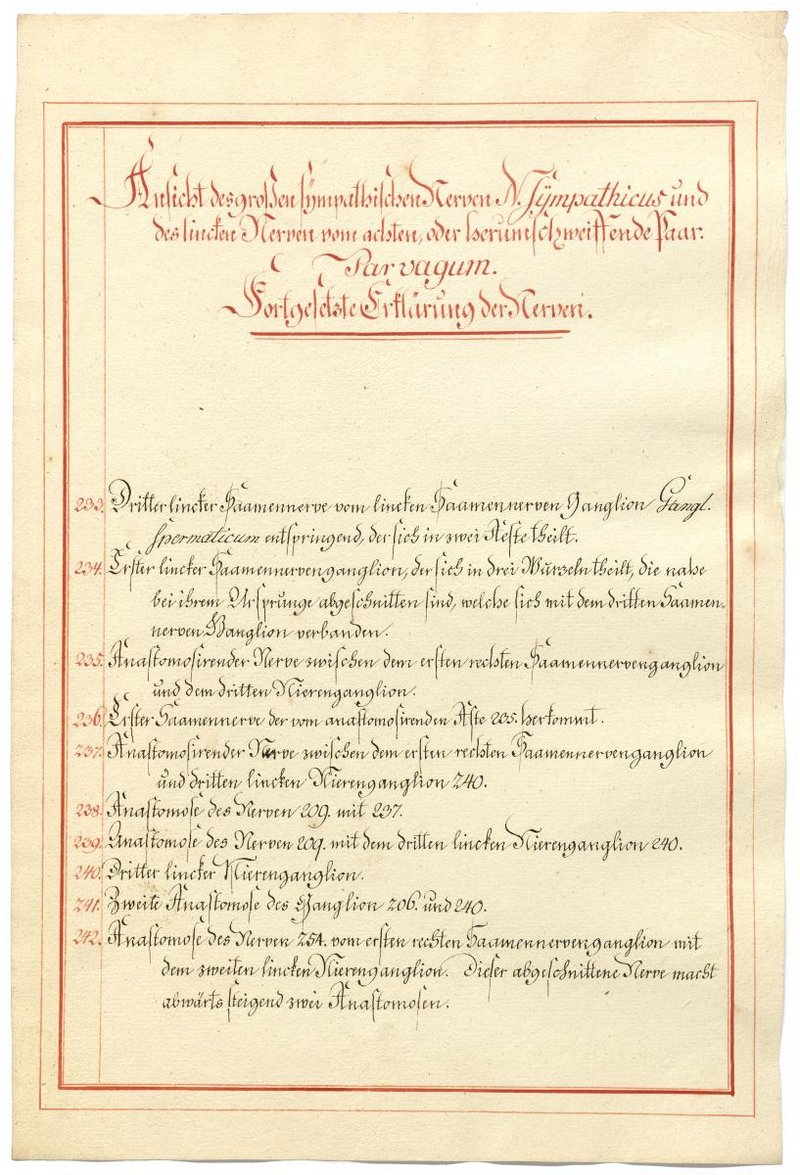 Ansicht des großen sympathischen Nerven N. Sympathicus und
des lincken Nerven vom achten, oder herumschweiffende Paar.
Par vagum.
Fortgesetzte Erklärung der Nerven.
233. Dritter lincker Saamennerve vom lincken Saamennerven Ganglion Gangl.
spermaticum entspringend, der sich in zwei Aeste theilt.
234. Erster lincker Saamennervenganglion, der sich in drei Wurzeln theilt, die nahe
bei ihrem Ursprunge abgeschnitten sind, welche sich mit dem dritten Saamen-
nerven Ganglion verbanden.
235. Anastomosirender Nerve zwischen dem ersten rechten Saamennervenganglion
und dem dritten Nierenganglion.
236. Erster Saamennerve der vom anastomosirenden Aste 235. herkommt.
237. Anastomosirender Nerve zwischen dem ersten rechten Saamennervenganglion
und dritten lincken Nierenganglion 240.
238. Anastomose des Nerven 209. mit 237.
239. Anastomose des Nerven 209. mit dem dritten lincken Nierenganglion 240.
240. Dritter lincker Nierenganglion.
241. Zweite Anastomose des Ganglion 206. und 240.
242. Anastomose des Nerven 254. vom ersten rechten Saamennervenganglion mit
dem zweiten lincken Nierenganglion. Dieser abgeschnittene Nerve macht
abwärts steigend zwei Anastomosen.